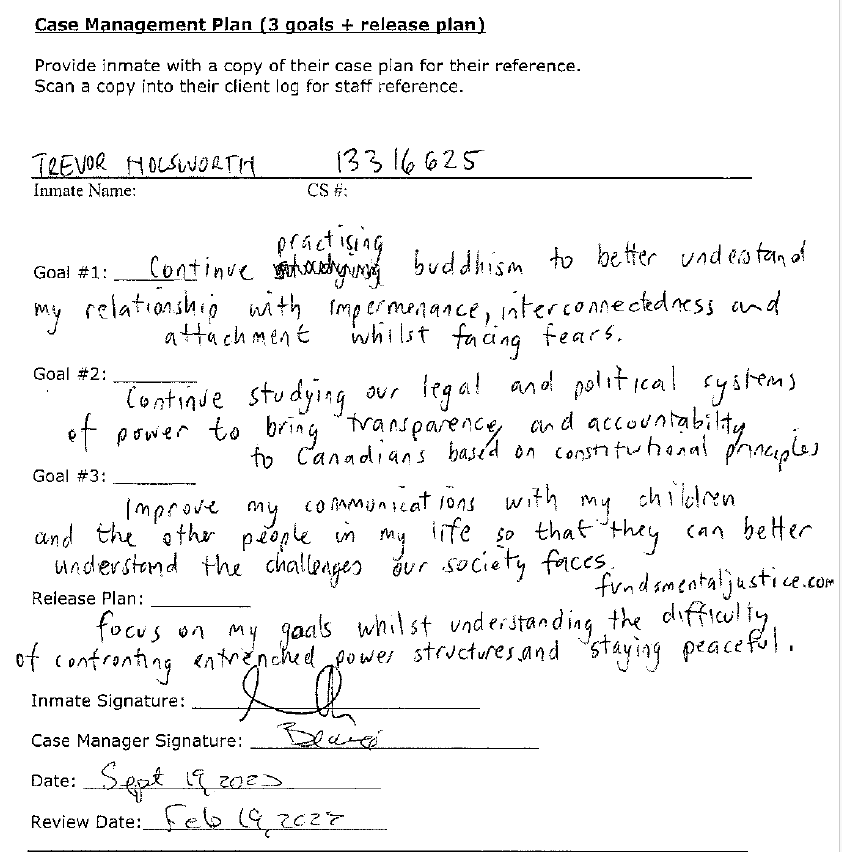 Case Management Plan (3 goals + release plan)
Provide inmate with a copy of their case plan for their reference.
Scan a copy into their client log for staff reference.
TREVOR HOLSWORTH 13316625
Inmate Name: CS #:
practising
Goal #1: Continue buddhism to better understand
my relationship with impermenance, interconnectedness and
attachment whilst facing fears.
Goal #2:
Continue studying our legal and political systems
of power to bring transparency and accountability
to Canadians based on constitutional principles
Goal #3:
Improve my communications with my children
and the other people in my life so that they can better
understand the challenges our society faces.
fundamentaljustice.com
Release Plan:
focus on my goals whilst understanding the difficulty
of confronting entrenched power structures and staying peaceful.
Inmate Signature:
Case Manager Signature:
Date: Sept 19,
Review Date: Feb 19,